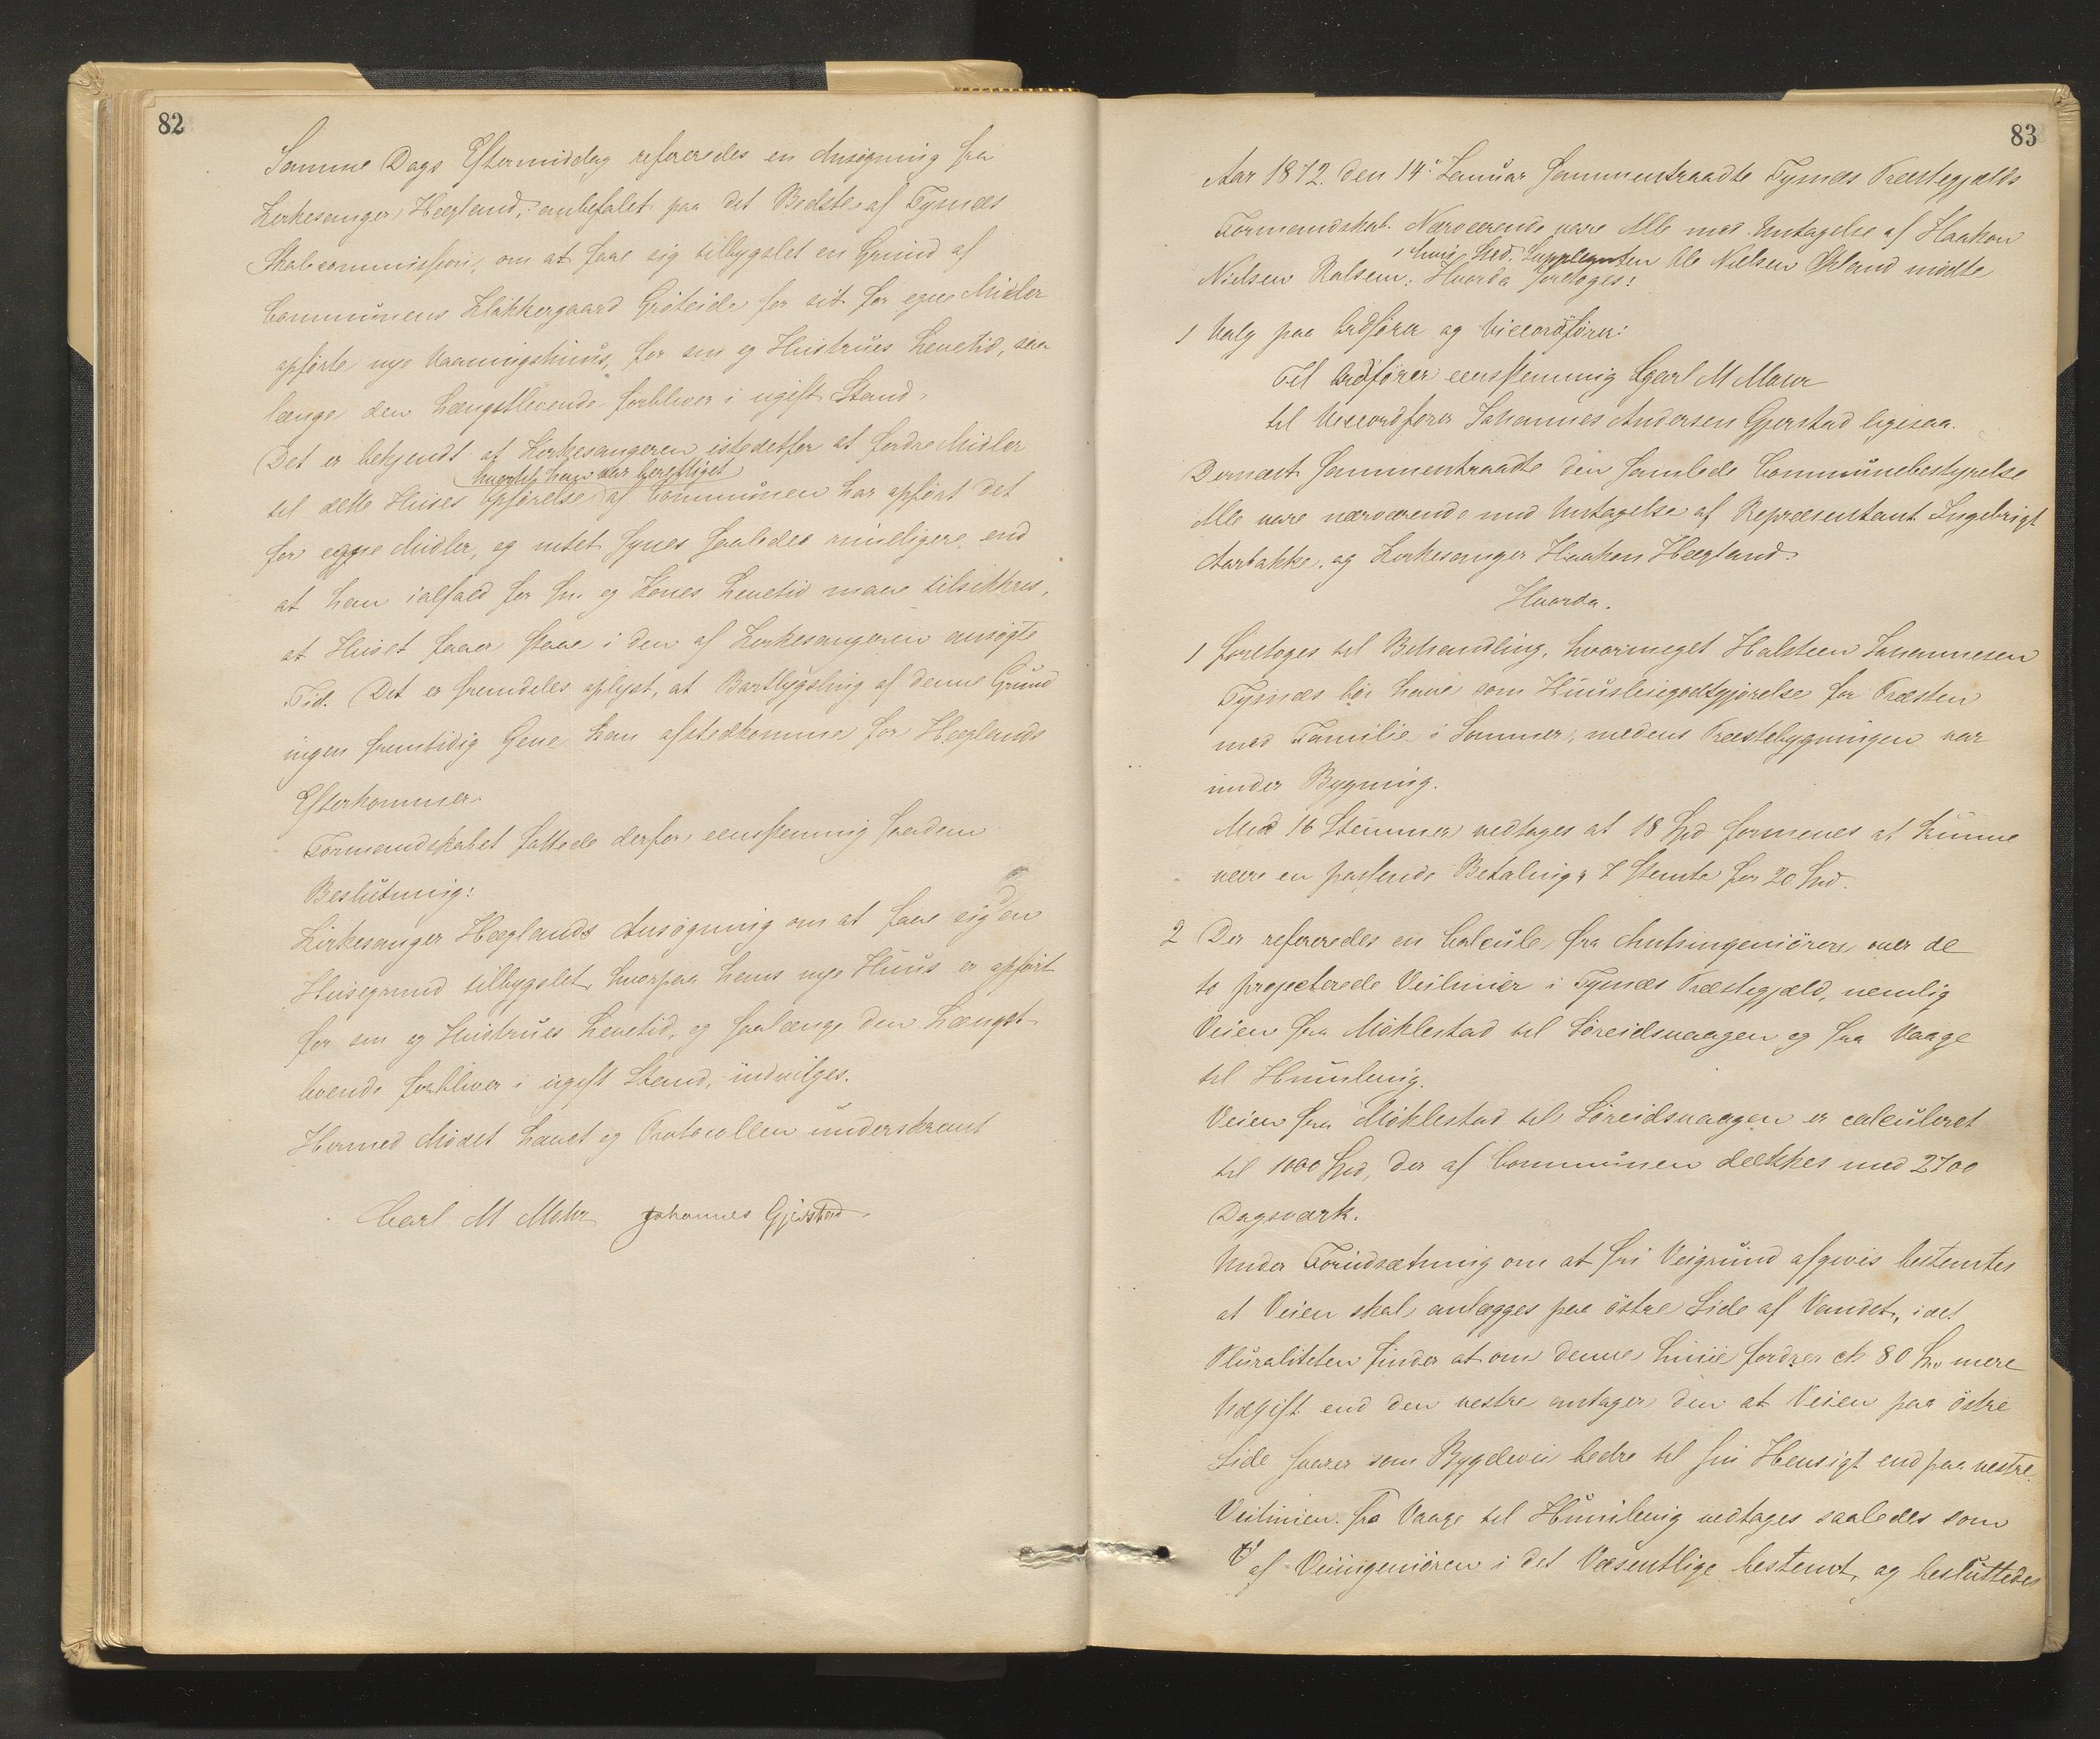 82
Samme Dags Eftermiddag refereredes en Ansøgning fra
Kirkesanger Hægland, anbefalet paa det Bedste af Tysnæs
Skolecommission, om at faae sig tilbygslet en Grund af
Communens Klokkergaard Grøteide for sit for egne Midler
opførte nye Vaaningshuus, for sin og Hustrues Levetid, saa
længe den Længstlevende forbliver i ugift Stand.
Det er bekjendt at Kirkesangeren istedetfor at fordre Midler
hvortil han var berettiget
til dette Huses Opførelse af Communen har opført det
for egne Midler, og intet synes saaledes rimeligere end
at han ialfald for sin og Kones Levetid maa tilsikkres,
at Huset faaer staae i den af Kirkesangeren ansøgte
Tid. Det er fremdeles oplyst, at Bortbygsling af denne Grund
ingen fremtidig Gene kan afstedkomme for Hæglands
Efterkommer.
Formandskabet fattede derfor eenstemmig saadan
Beslutning:
Kirkesanger Hæglands Ansøgning om at faae sig den
Huusegrund tilbygslet, hvorpaa hans nye Huus er opført
for sin og Hustrues Levetid, og saalænge den Længst-
levende forbliver i ugift Stand, indvilges.
Hermed Mødet hævet og Protocollen underskrevet
Carl M Mohr Johannes Gjerstad
83
Aar 1872. den 14de Januar sammentraadte Tysnæs Præstegjælds
Formandskab. Nærværende vare Alle med Untagelse af Haakon
i hvis Sted Supplianten Ole Nielsen Økland mødte
Nielsen Kalsem. Hvorda foretoges:
1 Valg paa Ordfører og Viceordfører:
Til Ordfører eenstemmig Carl M Mohr
til Viceordfører Johannes Andersen Gjerstad ligesaa.
Dernæst sammentraadte den samlede Communebestyrelse
Alle vare nærværende med Untagelse af Repræsentant Ingebrigt
Aarbakke, og Kirkesanger Haakon Hægland.
Hvorda.
1 foretoges til Behandling, hvormeget Halsteen Johannesen
Tysnæs bør have som Huusleiegodtgjørelse for Præsten
med Familie i Sommer, medens Præstebygningen var
under Bygning.
Med 16 Stemmer vedtoges at 18 Spd formenes at kunne
være en passende Betaling, 7 stemte for 20 Spd.
2 Der refereredes en Calcule fra Amtsingeniøren over de
to projecterede Veilinier i Tysnæs Præstegjæld, nemlig
Veien fra Møklestad til Søreidsvaagen og fra Vaage
til Humlevig.
Veien fra Møklestad til Søreidsvaagen er calculeret
til 1000 Spd, der af Communen dækkes med 2700
Dagsværk.
Under Forudsætning om at fri Veigrund afgives bestemtes
at Veien skal anlægges paa østre Side af Vandet, idet
Pluraliteten finder at om denne Linie fordrer ck 80 Spd mere
Udgift end den vestre antager den at Veien paa østre
Side svarer som Bygdevei bedre til sin Hensigt end paa vestre.
Veilinien fra Vaage til Humlevig vedtages saaledes som
af Veiingeniøren i det Væsentlige bestemt, og besluttedes